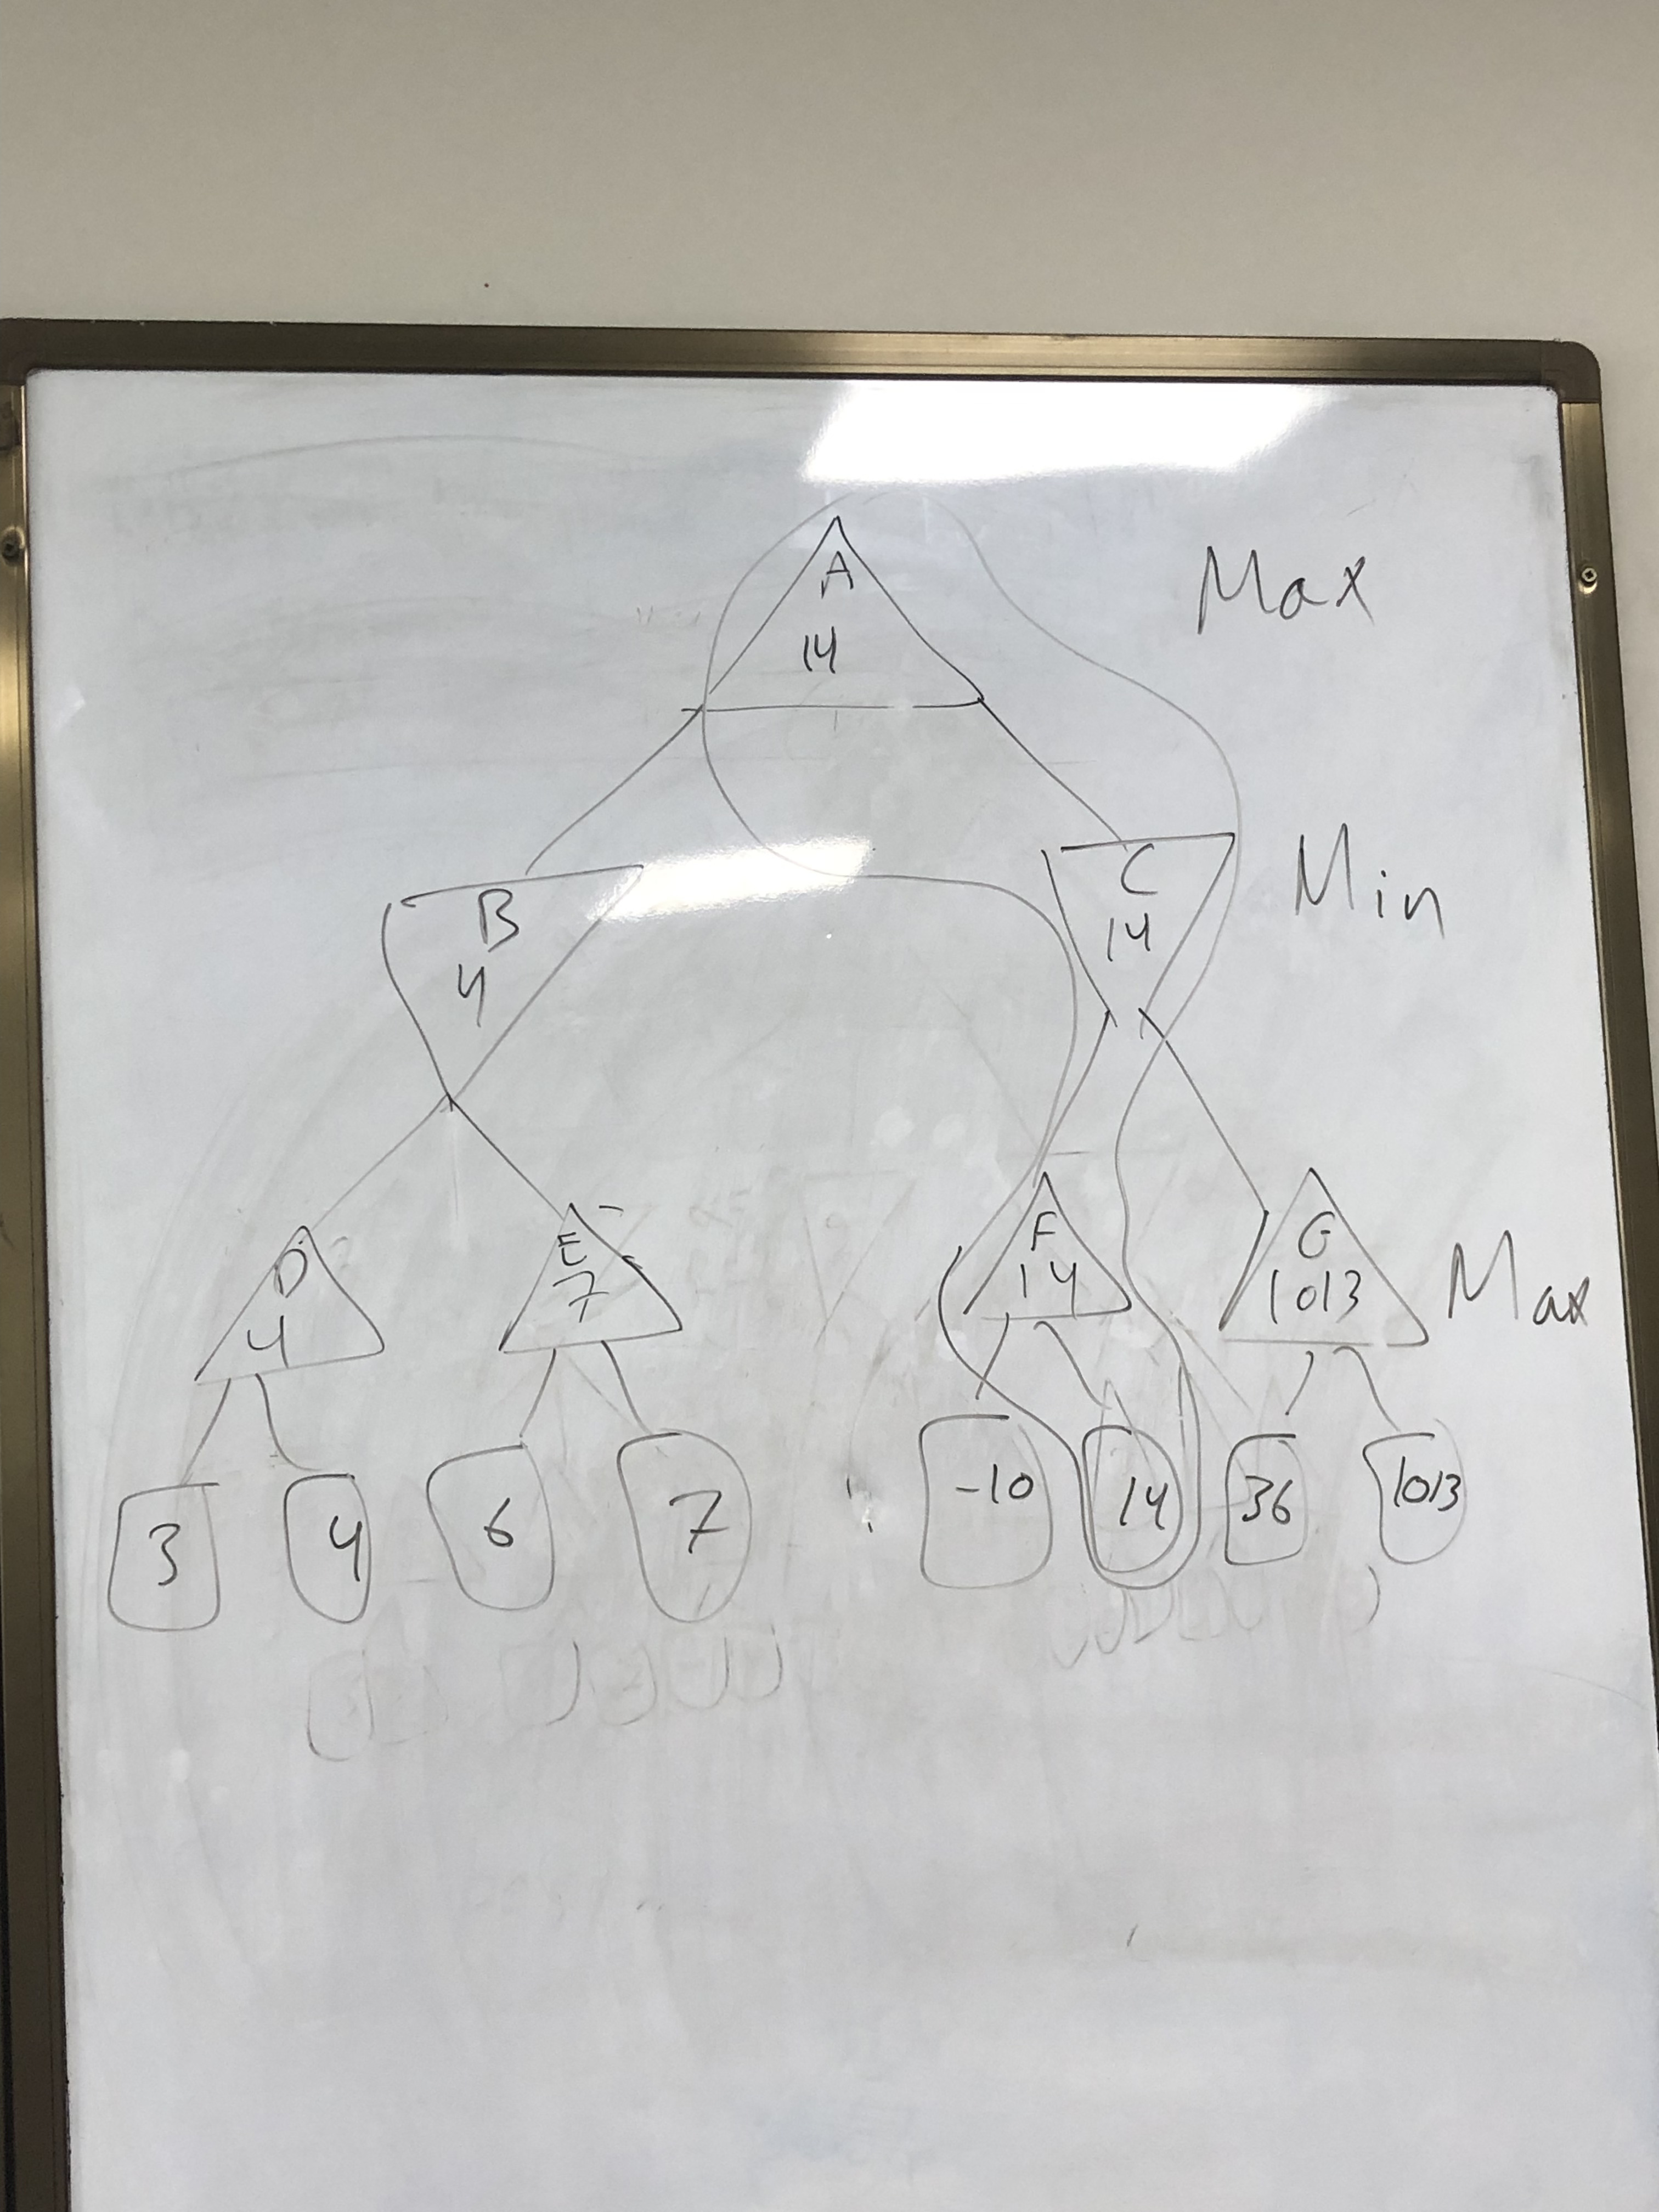 A
14
Max
B
4
C
14
Min
D
4
E
7
F
14
G
1013
Max
3
4
6
7
-10
14
36
1013